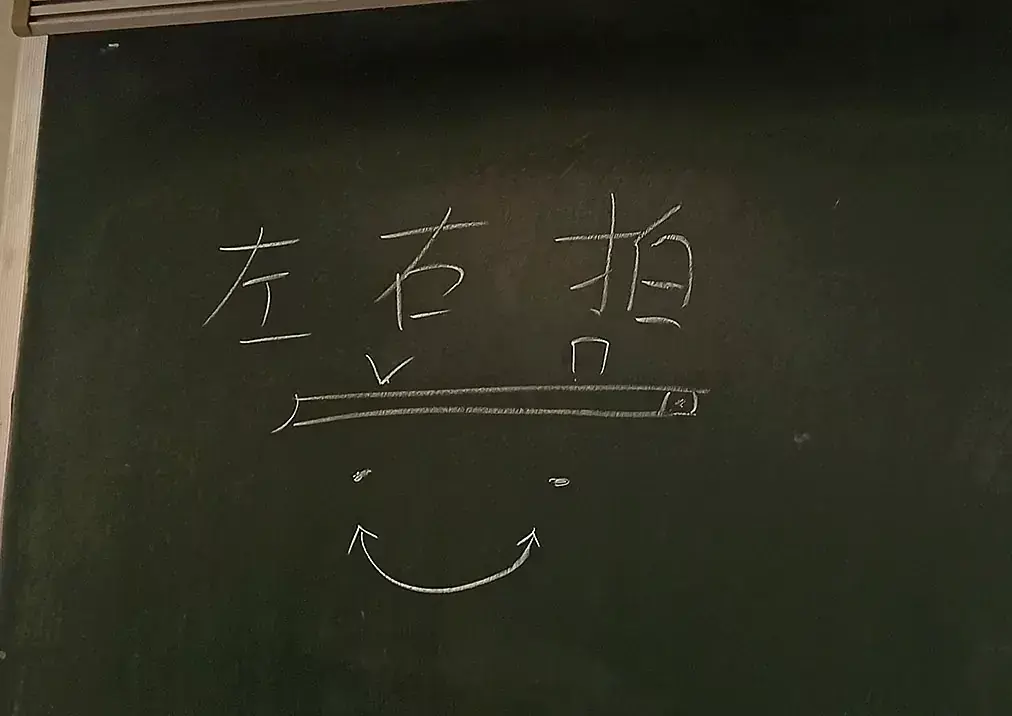 左右拍